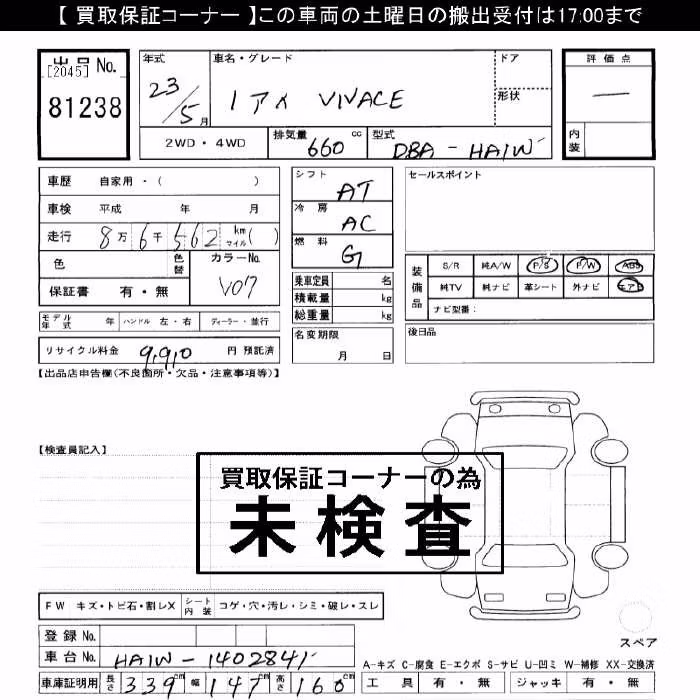 【 買取保証コーナー 】この車両の土曜日の搬出受付は17:00まで
出品 No.
[2045]
81238
年式
23/5月
車名・グレード
ミラ VIVACE
ドア
形状
評価点
—
内装
2WD・4WD
排気量 660 cc
型式 DBA-HA1W
車歴 自家用・( )
車検 平成 年 月
走行 8万6千562 km マイル( )
色
色替
カラーNo.
V07
保証書 有・無
モデル年式 年 ハンドル 左・右 ディーラー・並行
リサイクル料金 9,910 円 預託済
シフト AT
冷房 AC
燃料 G
乗車定員 名
積載量 kg
総重量 kg
名変期限
月 日
セールスポイント
装備品
S/R 純A/W P/S P/W ABS
純TV 純ナビ 革シート 外ナビ エアB
ナビ型番:
後日品
【出品店申告欄(不良箇所・欠品・注意事項等)】
【検査員記入】
買取保証コーナーの為
未検査
FW キズ・トビ石・割レX
シート内装 コゲ・穴・汚レ・シミ・破レ・スレ
登録 No.
車台 No. HA1W-1402841
車庫証明用 長さ 339 cm 幅 147 cm 高さ 160 cm
スペア
A-キズ C-腐食 E-エクボ S-サビ U-凹ミ W-補修 XX-交換済
工具 有・無 ジャッキ 有・無